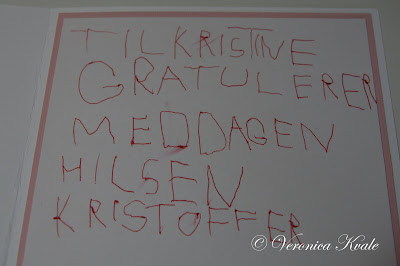 TILKRISTINE
GRATULERER
MEDDAGEN
HILSEN
KRISTOFFER
© Veronica Kvale